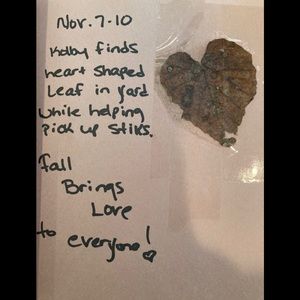 Nov. 7-10
Kolby finds
heart shaped
Leaf in yard
while helping
pick up stiks.
fall
Brings
Love
to everyone!